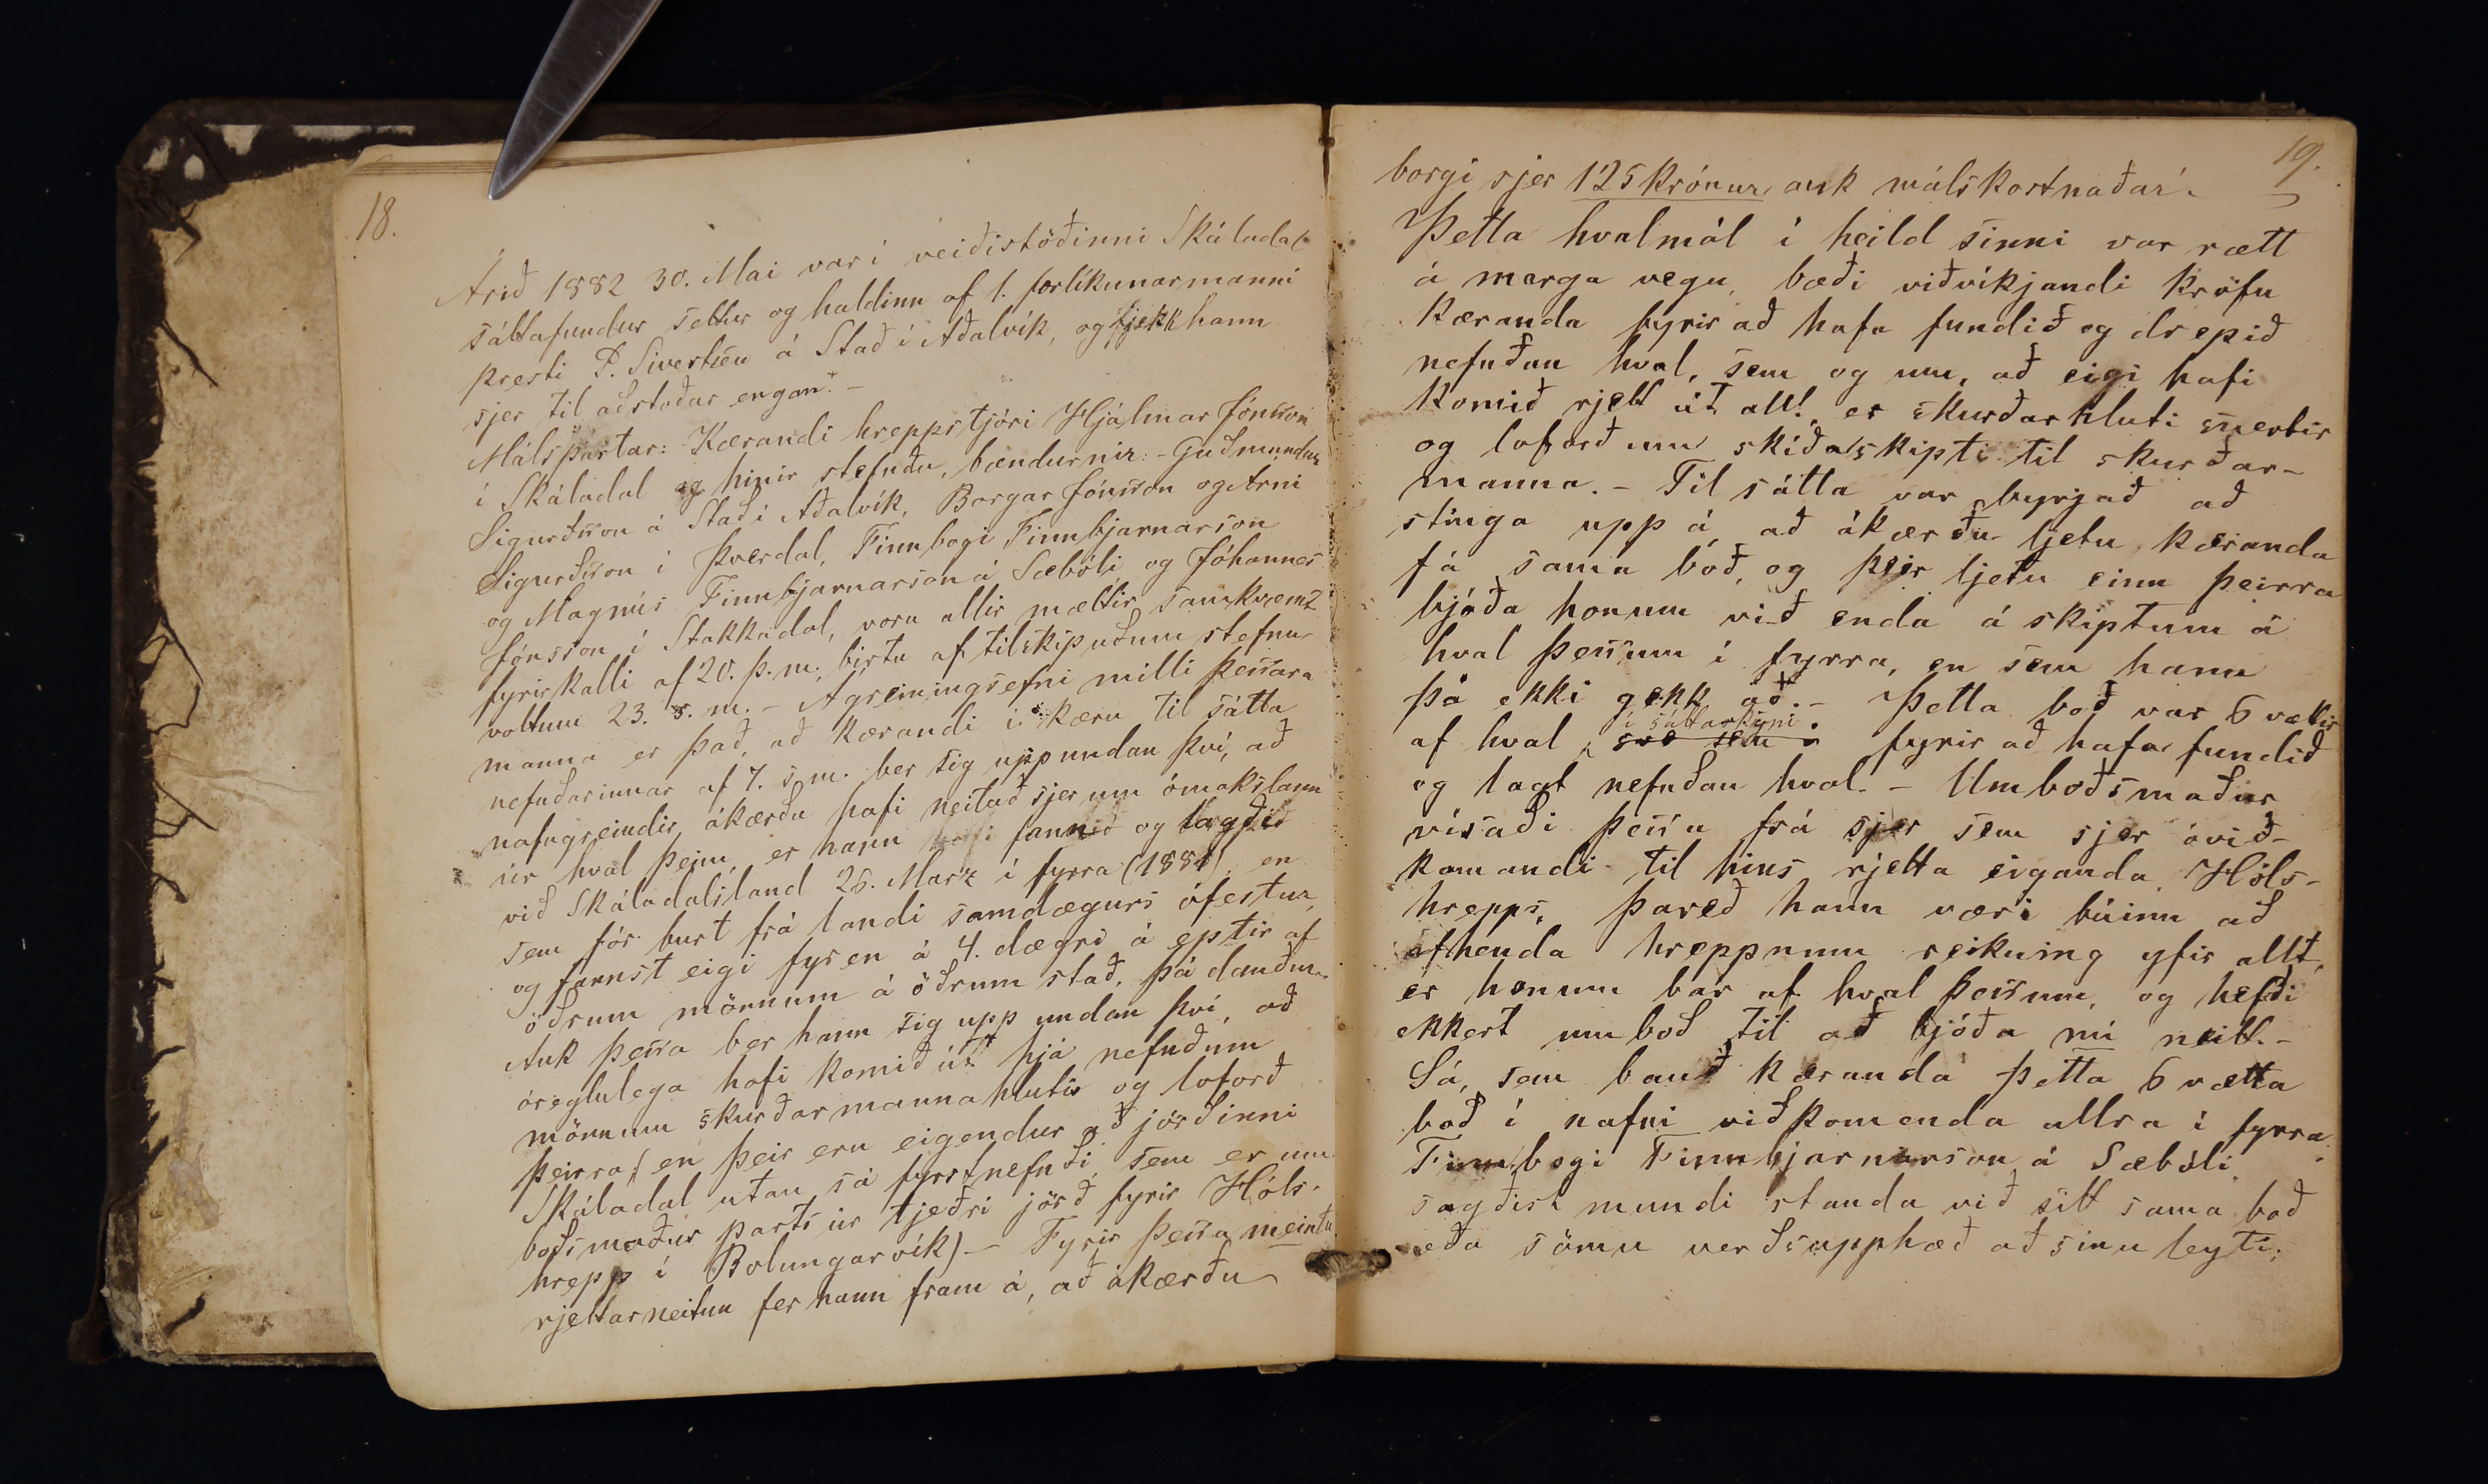 18.
Árið 1882 30. Mai var í veiðistöðinni Skáladal
sáttafundur settur og haldinn af 1. forlíkunarmanni
presti P. Sivertsen á Stað í Aðalvík, og fjekk hann
sjer til aðstoðar engan. –
Málspartar: Kærandi hreppstjóri Hjálmar Jónsson
í Skáladal og hinir stefndu, bændurnir: – Guðmundur
Sigurðsson á Stað í Aðalvík, Borgar Jónsson og Árni
Sigurðsson í Þverdal, Finnbogi Finnbjarnarson
og Magnús Finnbjarnarson á Sæbóli og Jóhannes
Jónsson í Stakkadal, voru allir mættir samkvæmt
fyrirkalli af 20. þ. m., birtu af tilskipuðum stefnu-
vottum 23. s. m. – Agreiningsefni milli þessara
manna er það, að kærandi í kæru til sátta
nefndarinnar af 7. s. m. ber sig upp undan því, að
nafngreindir ákærðu hafi neitað sjer um ómakslaun
úr hval þeim, er hann hafi fannið og lagðið
við Skáladalsland 26. Marz í fyrra (1881), en
sem fór burt frá landi samdægurs ófestur,
og fannst eigi fyr en á 4. dægri á eptir af
öðrum mönnum á öðrum stað, þá dauður.
Auk þessa ber hann sig upp undan því, að
óreglulega hafi komið út hjá nefndum
mönnum skurðarmannahlutir og loforð
þeirra, (en þeir eru eigendur að jörðinni
Skáladal utan sá fyrstnefndi, sem er um
boðsmaður parts úr tjeðri jörð fyrir Hóls-
hrepp í Bolungarvík) – Fyrir þessa meintu
rjettarneitun fer hann fram á, að ákærðu
19.
borgi sjer 125 krónur, auk málskostnaðar. –
Þetta hvalmál í heild sinni var rætt
á marga vegu, bæði viðvíkjandi kröfu
kæranda fyrir að hafa fundið og drepið
nefndan hval, sem og um, að eigi hafi
komið rjett út allt, er skurðarhluti snertir
og loforð um skíðaskipti til skurðar-
manna. – Til sátta var byrjað að
stinga upp á, að ákærðu ljetu kæranda
fá sama boð, og þeir ljetu einn þeirra
bjóða honum við enda á skiptum á
hval þessum í fyrra, en sem hann
þá ekki gekk að. – Þetta boð var 6 vættir
í sáttarskyni
af hval, svo sem fyrir að hafa fundið
og lagt nefndan hval. – Umboðsmaður
vísaði þessu frá sjer sem sjer óvið-
komandi til hins rjetta eiganda Hóls-
hrepps, þareð hann væri búinn að
afhenda hreppnum reikning yfir allt,
er honum bar af hval þessum, og hefði
ekkert umboð til að bjóða nú neitt. –
Sá, sem bauð kæranda þetta 6 vætta
boð í nafni viðkomenda allra í fyrra
Finnbogi Finnbjarnarson á Sæbóli
sagðist mundi standa við sitt sama boð
eða sömu verðsupphæð að sínu leyti;